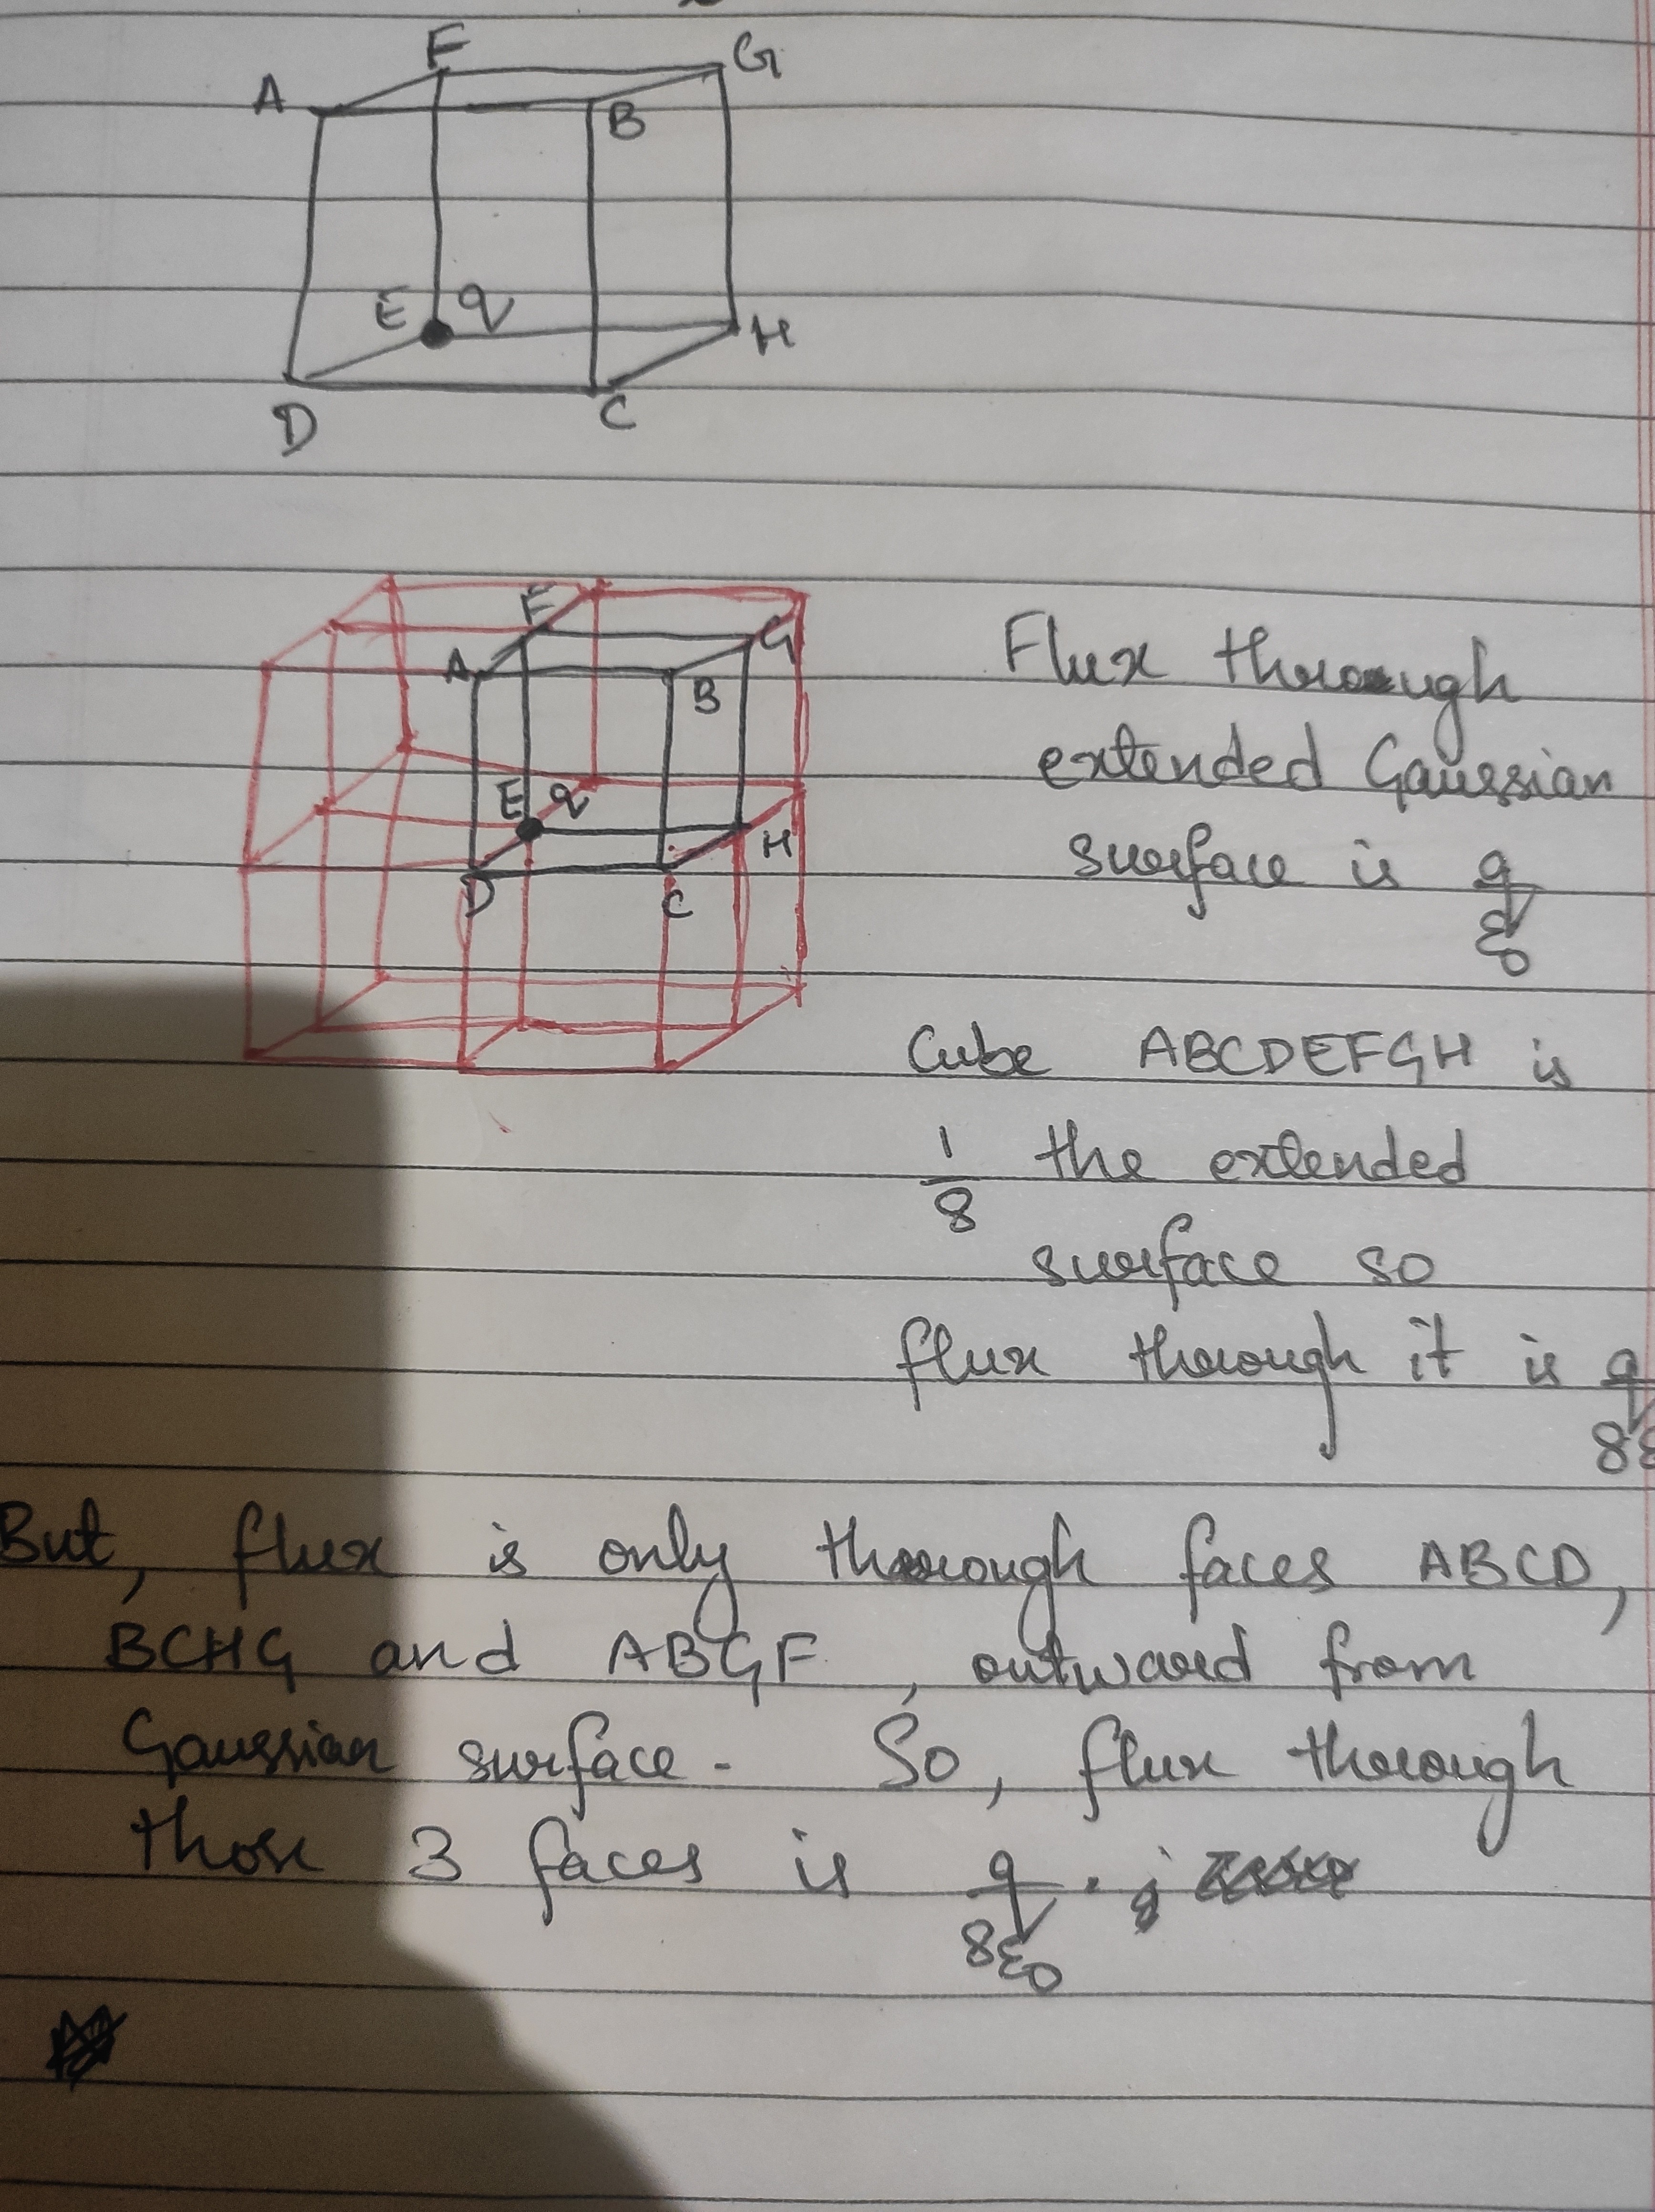 F
G
A
B
E q
H
D
C
F
G
A
B
E q
H
D
C
Flux through
extended Gaussian
surface is q/ε0
Cube ABCDEFGH is
1/8 the extended
surface so
flux through it is q/8ε
But, flux is only through faces ABCD,
BCHG and ABGF, outward from
Gaussian surface. So, flux through
those 3 faces is q/8ε0.